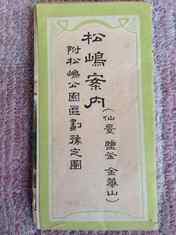 松嶋案内
(仙臺 鹽釜 金華山)
附松嶋公園區劃豫定圖